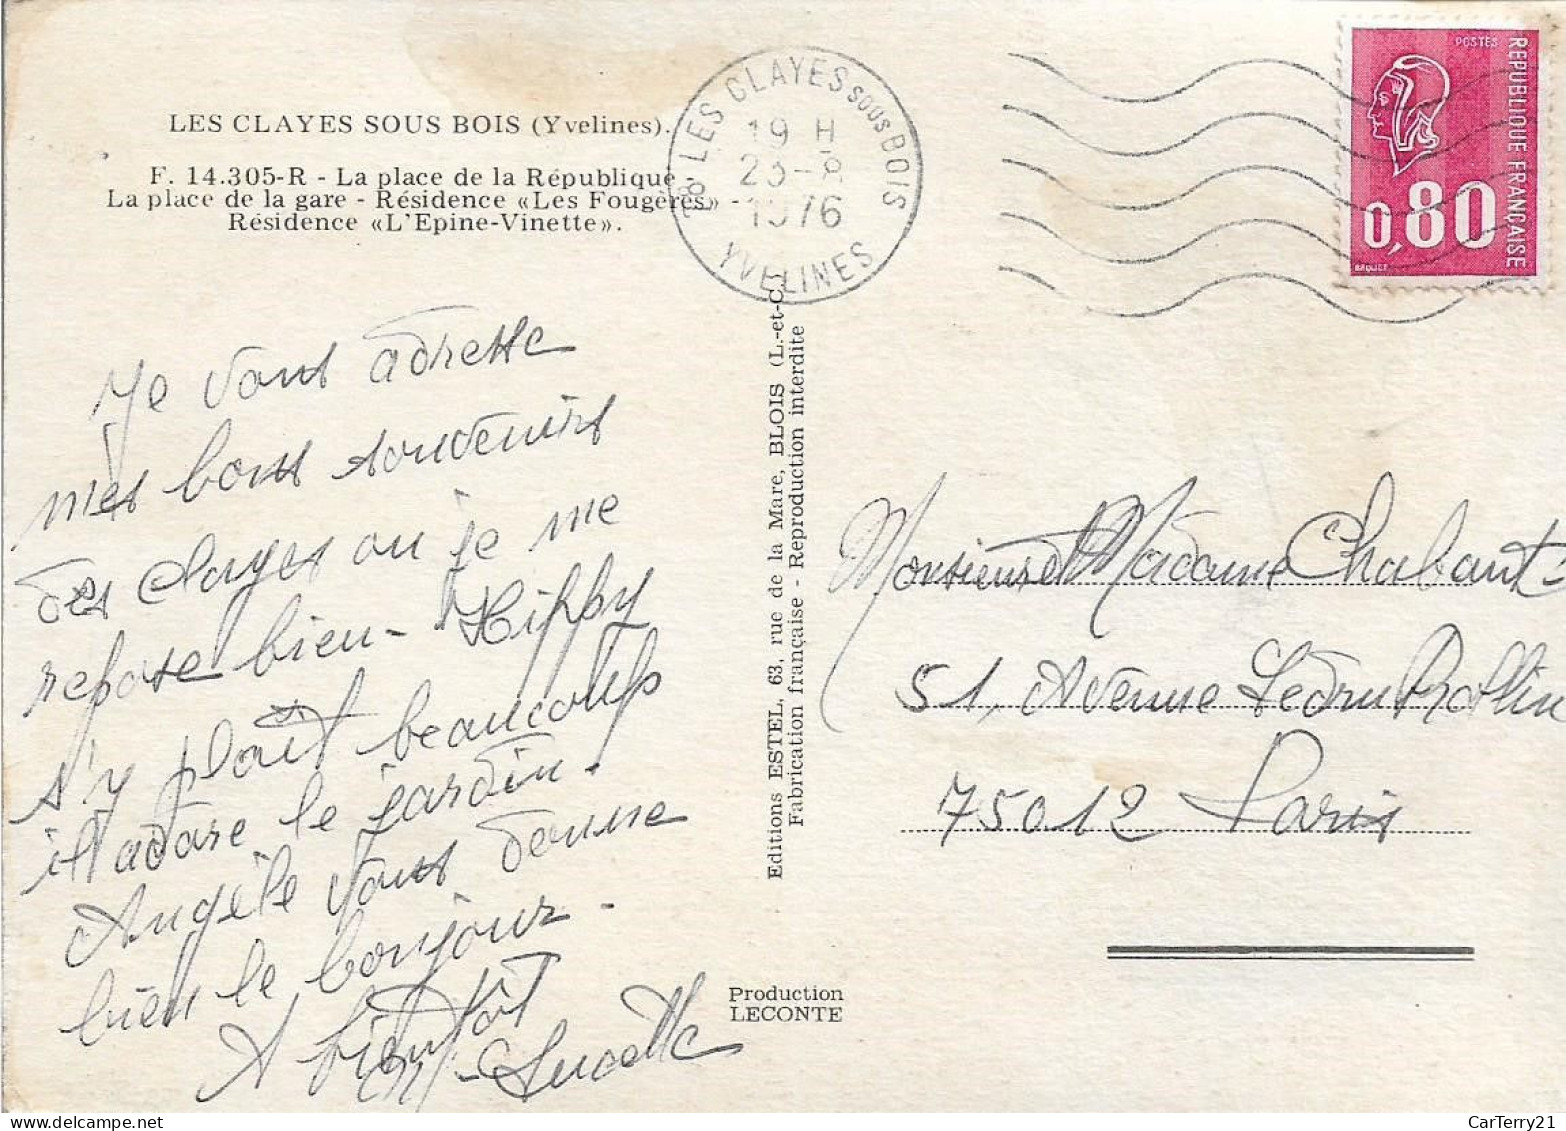 LES CLAYES SOUS BOIS (Yvelines).
F. 14.305-R - La place de la République -
La place de la gare - Résidence «Les Fougères» -
Résidence «L'Epine-Vinette».
78 LES CLAYES SOUS BOIS
19 H
23-8
1976
YVELINES
POSTES
REPUBLIQUE FRANÇAISE
0,80
BEQUET
Je vous adresse
mes bons souvenirs
des Clayes ou je me
repose bien - Kippy
s'y plaît beaucoup
il adore le jardin.
Angèle vous donne
bien le bonjour.
A bientôt
Lucette
Editions ESTEL, 63, rue de la Mare, BLOIS (L.-et-C.)
Fabrication française - Reproduction interdite
Production
LECONTE
Monsieur et Madame Chabant
51, Avenue Ledru Rollin
75012 Paris
www.delcampe.net
CarTerry21